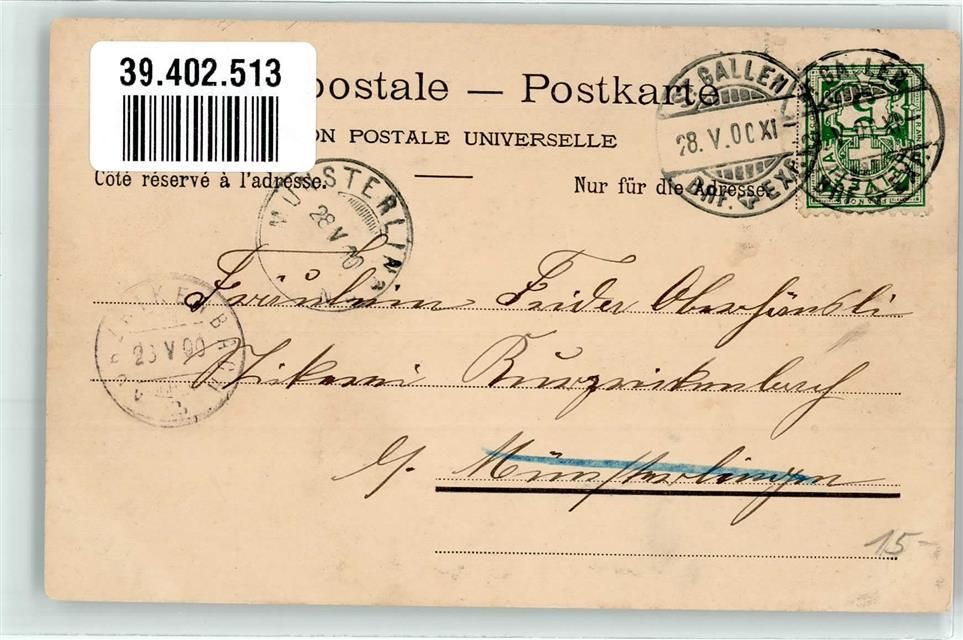 39.402.513
postale — Postkarte
ON POSTALE UNIVERSELLE
Côté réservé à l'adresse.
Nur für die Adresse.
ST. GALLEN
28.V.00 XI
BRIF. EXP.
MÜNSTERLINGEN
28 V 00
KURZRICKENBACH
28 V 00
Fräulein Frieda Oberhänsli
Kurzrickenbach
b/. Münsterlingen
15-